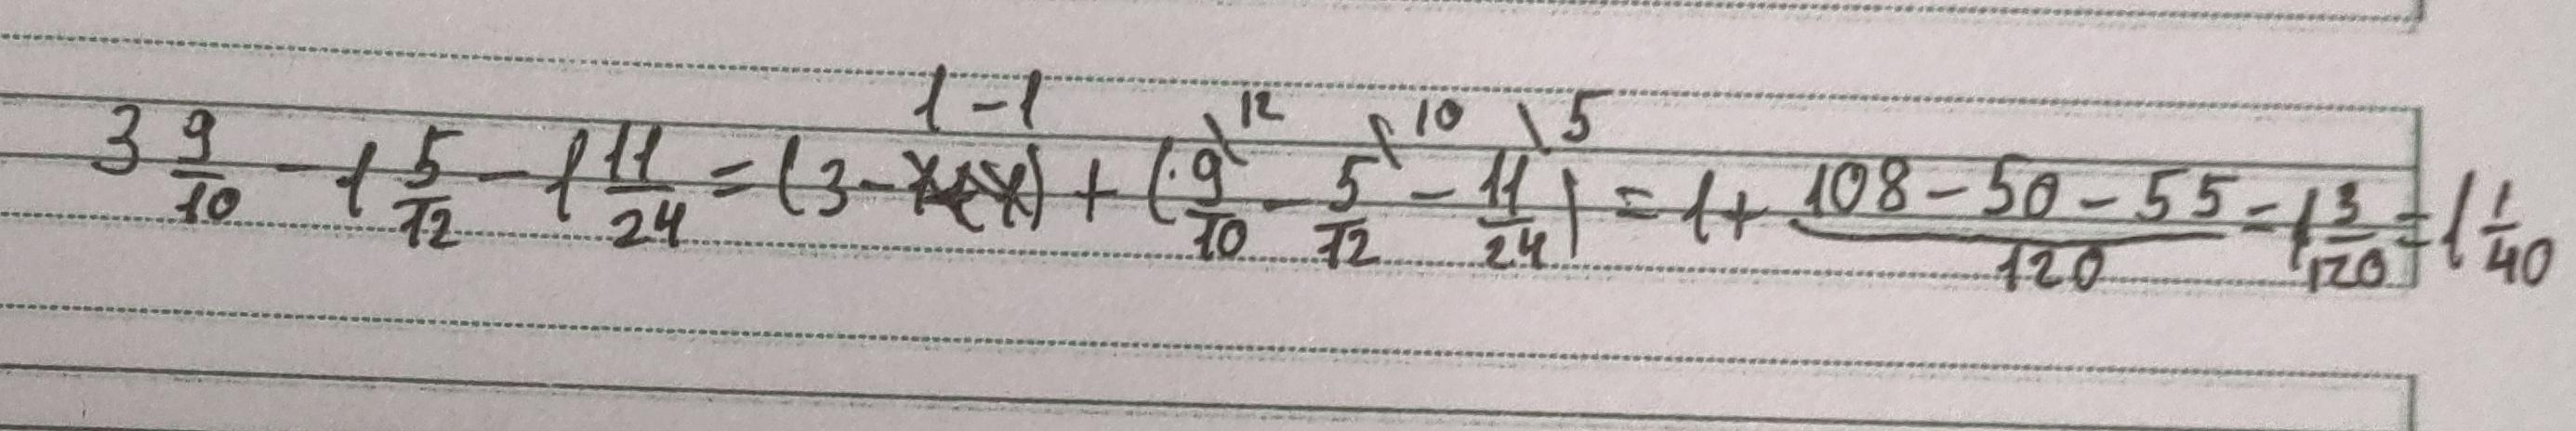 1 - 1
3 9/10 - 1 5/12 - 1 11/24 = (3 - ) + (9\12/10 - 5\10/12 - 11\5/24) = 1 + (108 - 50 - 55)/120 = 1 3/120 = 1 1/40